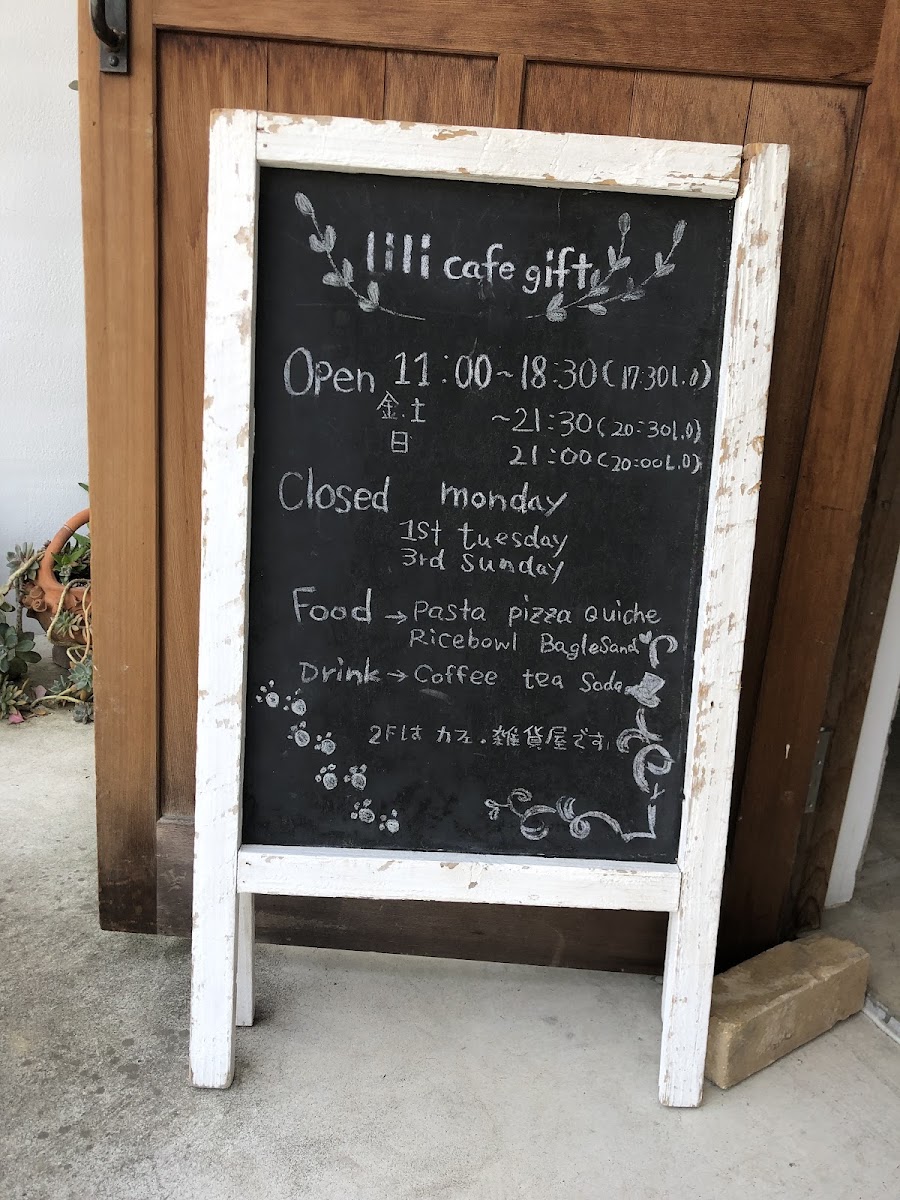 lili cafe gift
Open 11:00~18:30(17:30L.O)
金.土 ~21:30(20:30L.O)
日 21:00(20:00L.O)
Closed monday
1st tuesday
3rd sunday
Food → Pasta pizza Quiche
Ricebowl BagleSand
Drink → Coffee tea Soda
2Fは カフェ.雑貨屋です